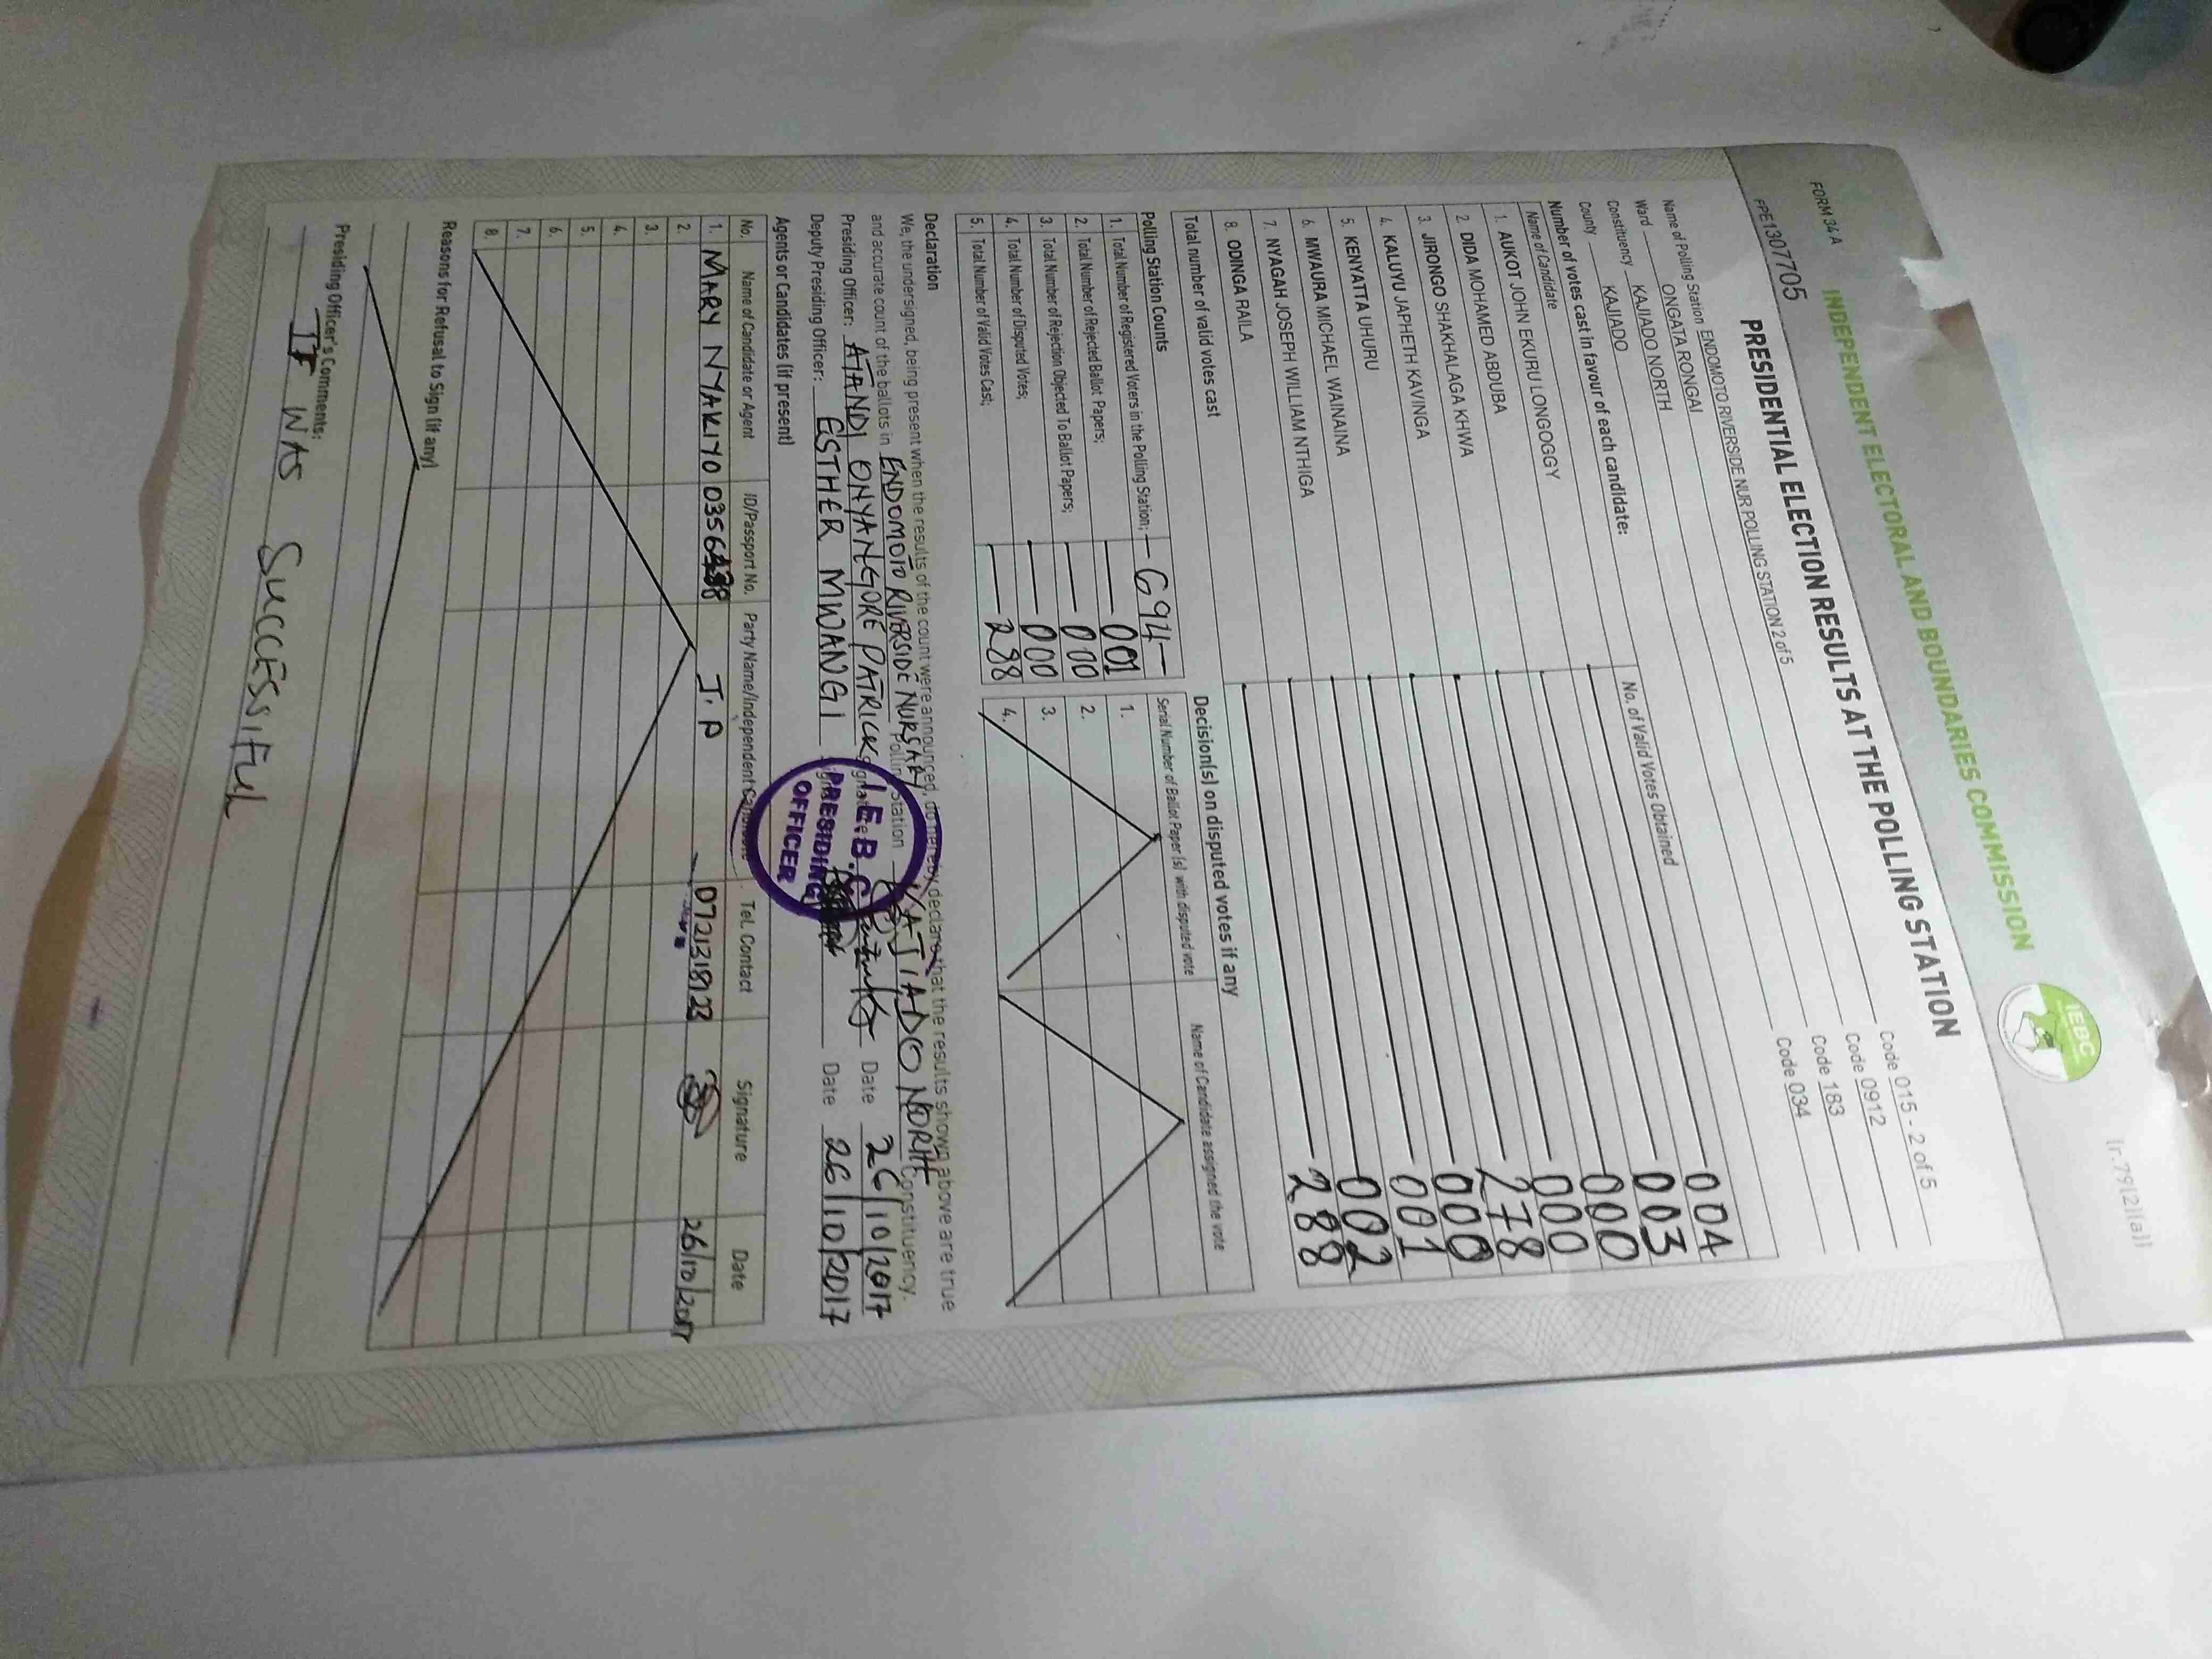 (r.79(2)(a))
FORM 34 A
INDEPENDENT ELECTORAL AND BOUNDARIES COMMISSION
IEBC
FPE1307705
PRESIDENTIAL ELECTION RESULTS AT THE POLLING STATION
Name of Polling Station ENDOMOTO RIVERSIDE NUR POLLING STATION 2 of 5 Code 015 - 2 of 5
Ward ONGATA RONGAI Code 0912
Constituency KAJIADO NORTH Code 183
County KAJIADO Code 034
Number of votes cast in favour of each candidate:
Name of Candidate No. of Valid Votes Obtained
1. AUKOT JOHN EKURU LONGOGGY 004
2. DIDA MOHAMED ABDUBA 003
3. JIRONGO SHAKHALAGA KHWA 000
4. KALUYU JAPHETH KAVINGA 000
5. KENYATTA UHURU 278
6. MWAURA MICHAEL WAINAINA 000
7. NYAGAH JOSEPH WILLIAM NTHIGA 001
8. ODINGA RAILA 002
Total number of valid votes cast 288
Polling Station Counts
1. Total Number of Registered Voters in the Polling Station; 694
2. Total Number of Rejected Ballot Papers; 001
3. Total Number of Rejection Objected To Ballot Papers; 000
4. Total Number of Disputed Votes; 000
5. Total Number of Valid Votes Cast; 288
Decision(s) on disputed votes if any
Serial Number of Ballot Paper (s) with disputed vote Name of Candidate assigned the vote
1.
2.
3.
4.
Declaration
We, the undersigned, being present when the results of the count were announced, do hereby declare that the results shown above are true
and accurate count of the ballots in ENDOMOTO RIVERSIDE NURSARY Polling Station KAJIADO NORTH Constituency.
Presiding Officer: ATANDI ONYANGORE PATRICK Date 26/10/2017
Deputy Presiding Officer: ESTHER MWANGI Date 26/10/2017
I.E.B.C
PRESIDING
OFFICER
Agents or Candidates (if present)
No. Name of Candidate or Agent ID/Passport No. Party Name/Independent Candidate Tel. Contact Signature Date
1. MARY NYAKIYO J.P 0721318922 26/10/2017
2.
3.
4.
5.
6.
7.
8.
Reasons for Refusal to Sign (if any)
Presiding Officer's Comments:
IT WAS SUCCESSIFUL